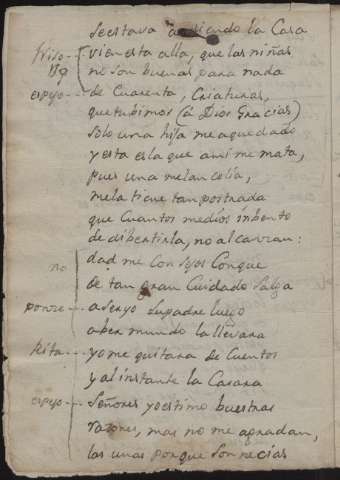 se estava barriendo la Casa
viso viven esta alla, que las niñas
ni son buenas para nada
espejo de Cuarenta, Criaturas,
que tubimos (â Dios Gracias)
Solo una hija me a quedado
y esta es la que a mi me mata,
pues una melancolia,
mela tiene tan postrada
que Cuantos medios inbento
de dibertirla, no alcanzan:
no dadme Consejos Conque
de tan gran Cuidado Salga
ponze a ser yo su padre luego
a ber mundo la llevara
Rita yo me quitara de Cuentos
y al instante la Casara
espejo Señores yo estimo buestras
razones, mas no me agradan,
las unas porque son necias